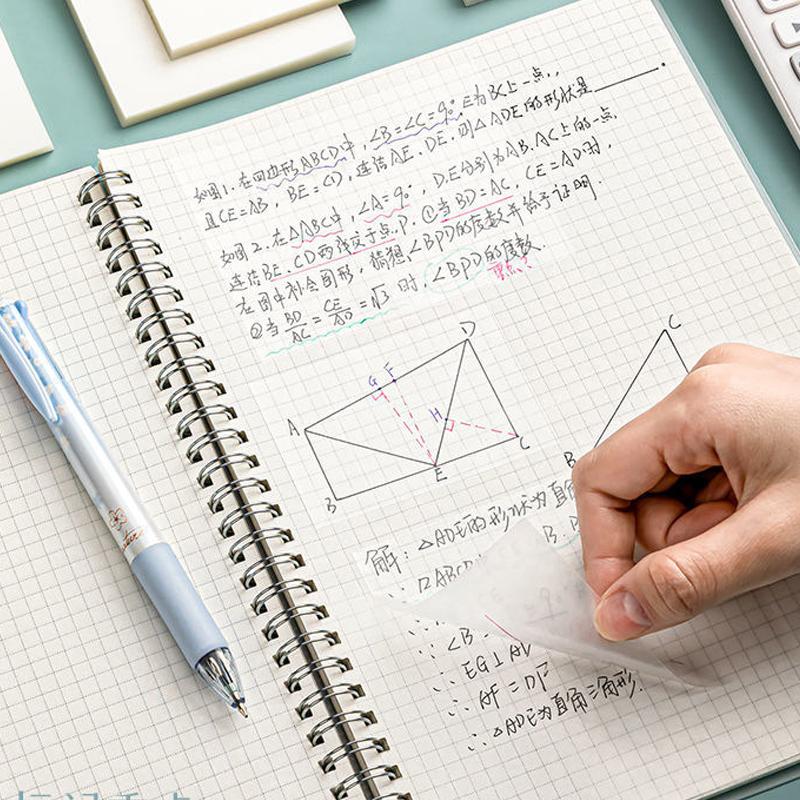 如图1.在四边形ABCD中,∠B=∠C=90°,E为BC上一点,
且CE=AB,BE=CD,连结AE.DE.则△ADE的形状是______.
如图2.在△ABC中,∠A=90°,D.E分别为AB.AC上的一点,
连结BE.CD两线交于点P.①当BD=AC,CE=AD时,
在图中补全图形,猜想∠BPD的度数并给予证明.
②当BD/AC=CE/AD=√3时,∠BPD的度数.
重点?
D
C
G F
A
H
C
E
B
B
解:△ADE的形状为直角
B.
∵ □ABCD
∠B
∴ EG⊥A
∴ AF=DF
∴ △ADE为直角三角形.